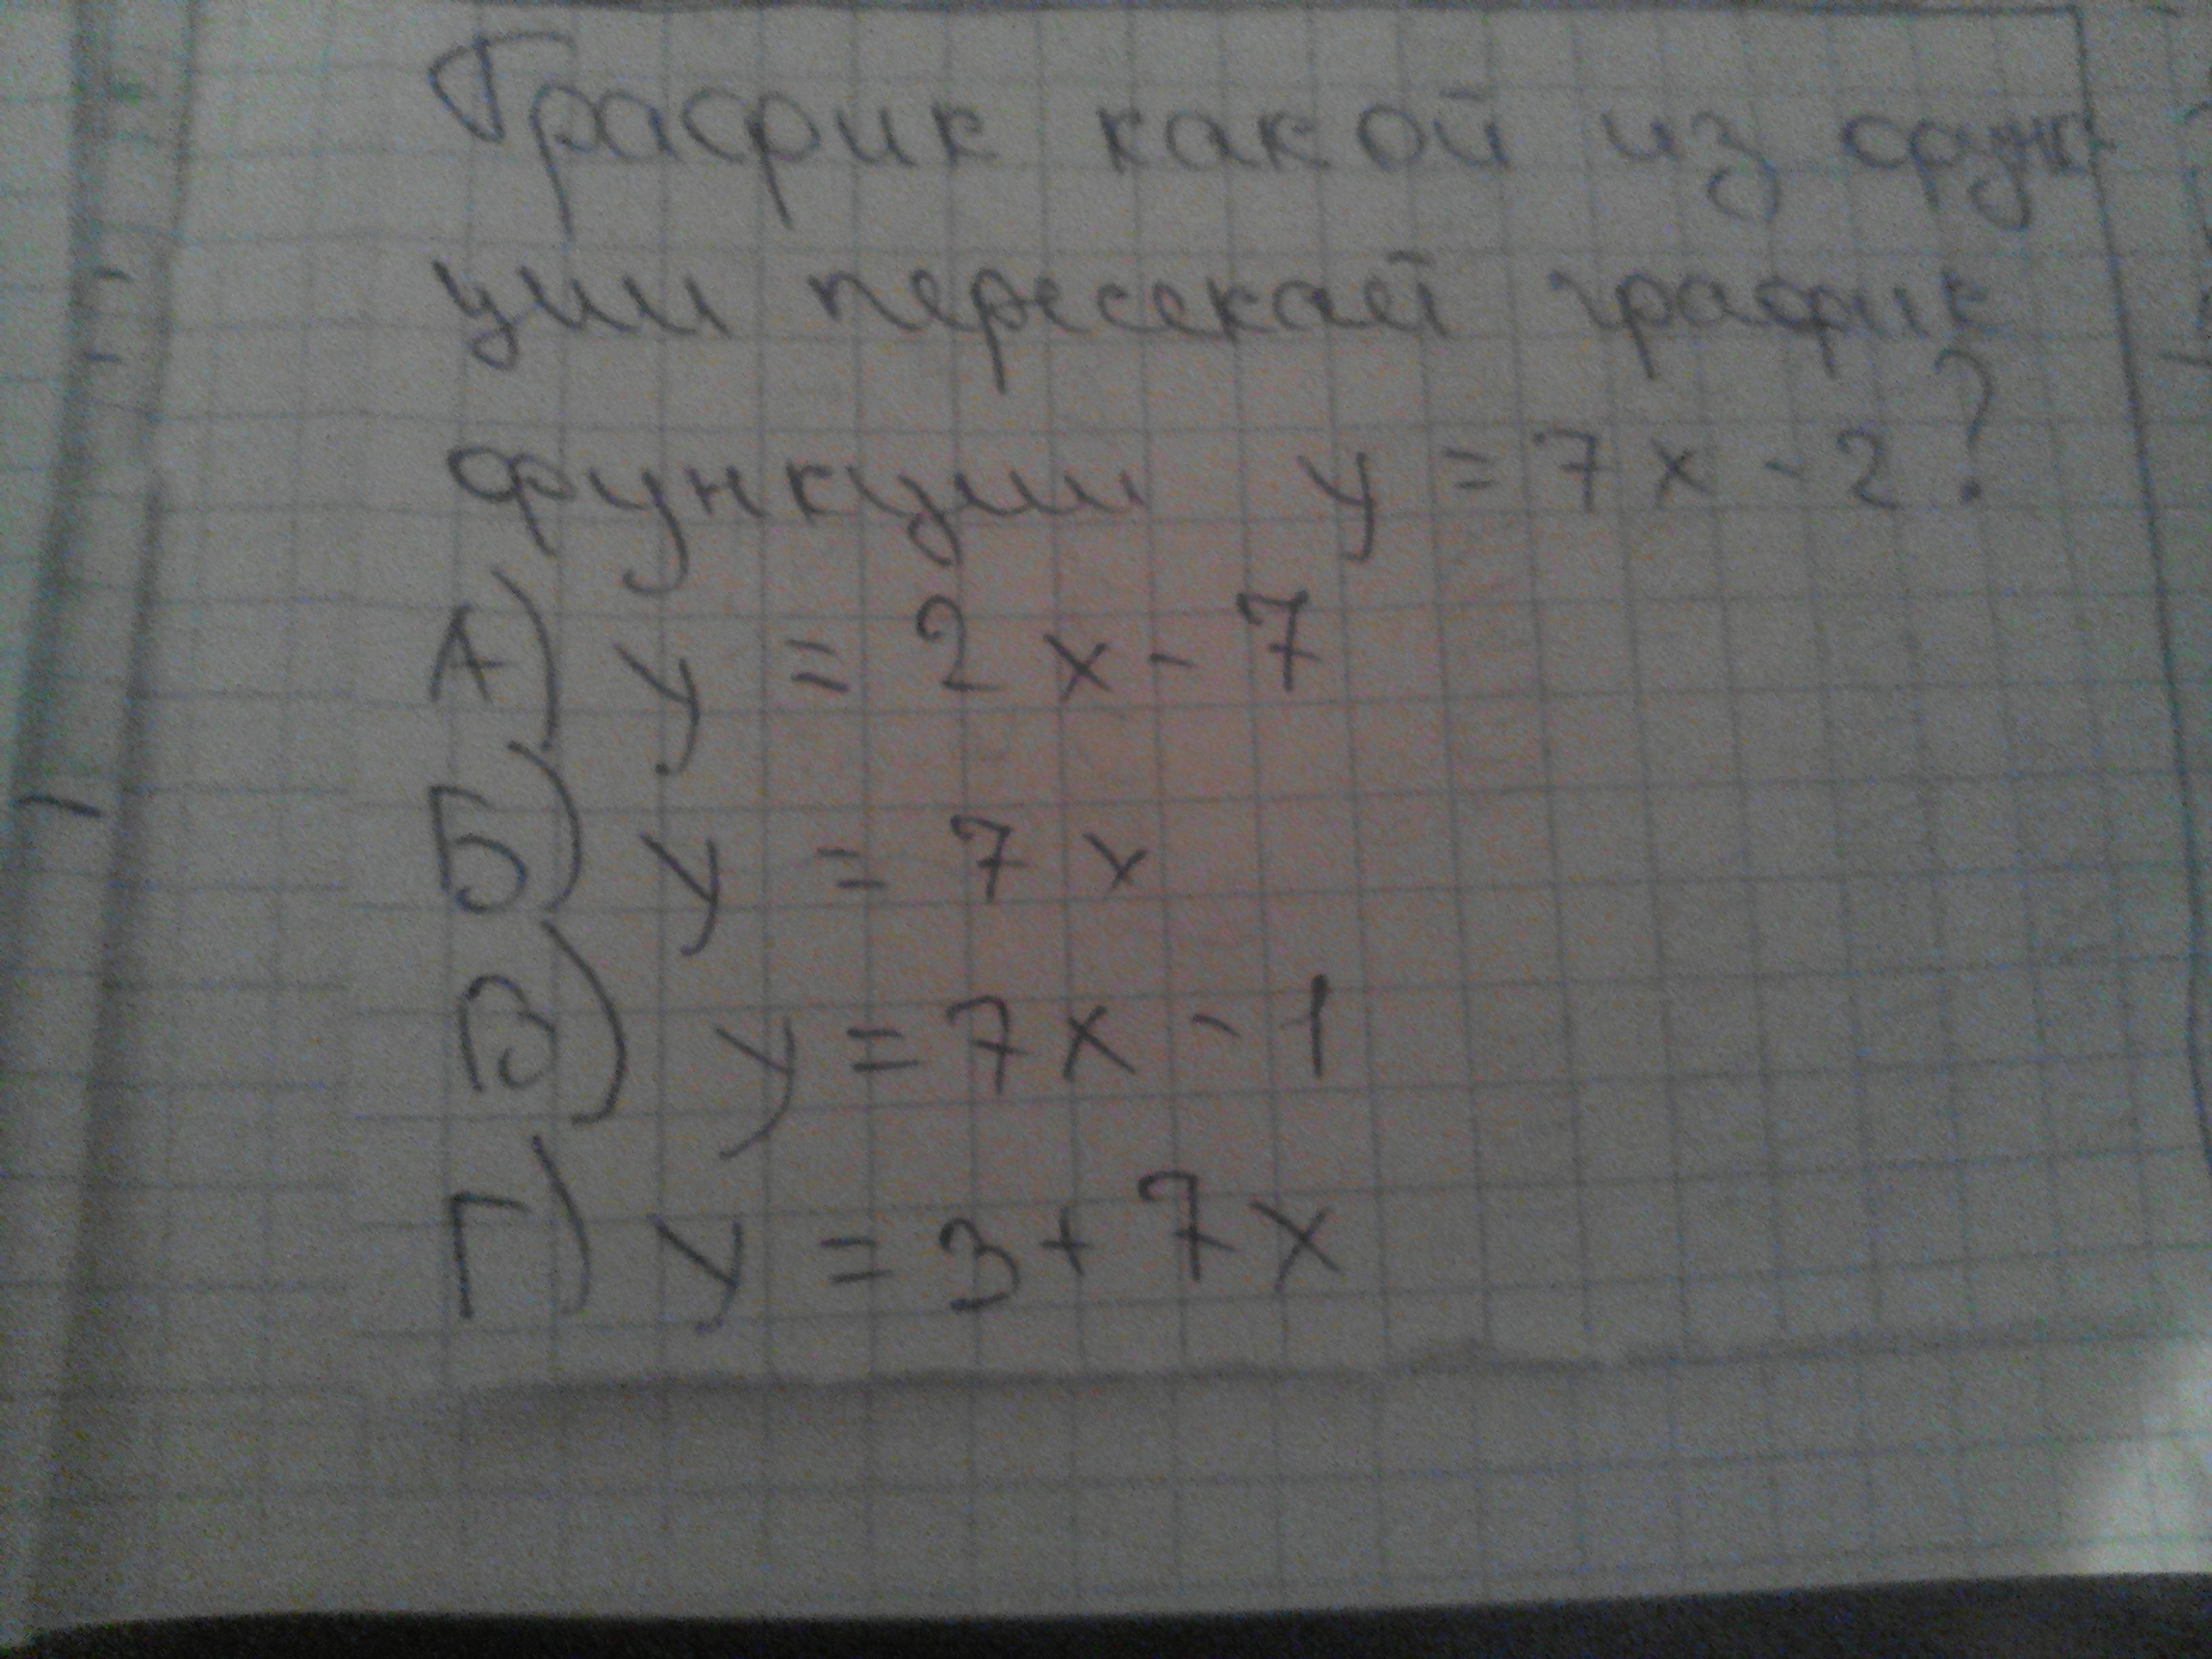 График какой из функ
ции пересекает график
функции y = 7x - 2?
А) y = 2x - 7
Б) y = 7x
В) y = 7x - 1
Г) y = 3 + 7x